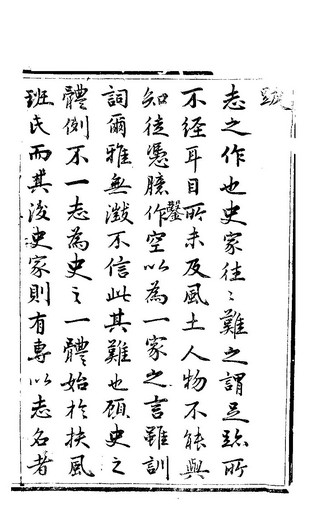 跋
志之作也史家往〻難之謂足跡所
不經耳目所未及風土人物不能與
知徒憑臆作鑿空以為一家之言雖訓
詞爾雅無徵不信此其難也顧史之
體例不一志為史之一體始於扶風
班氏而其後史家則有專以志名者